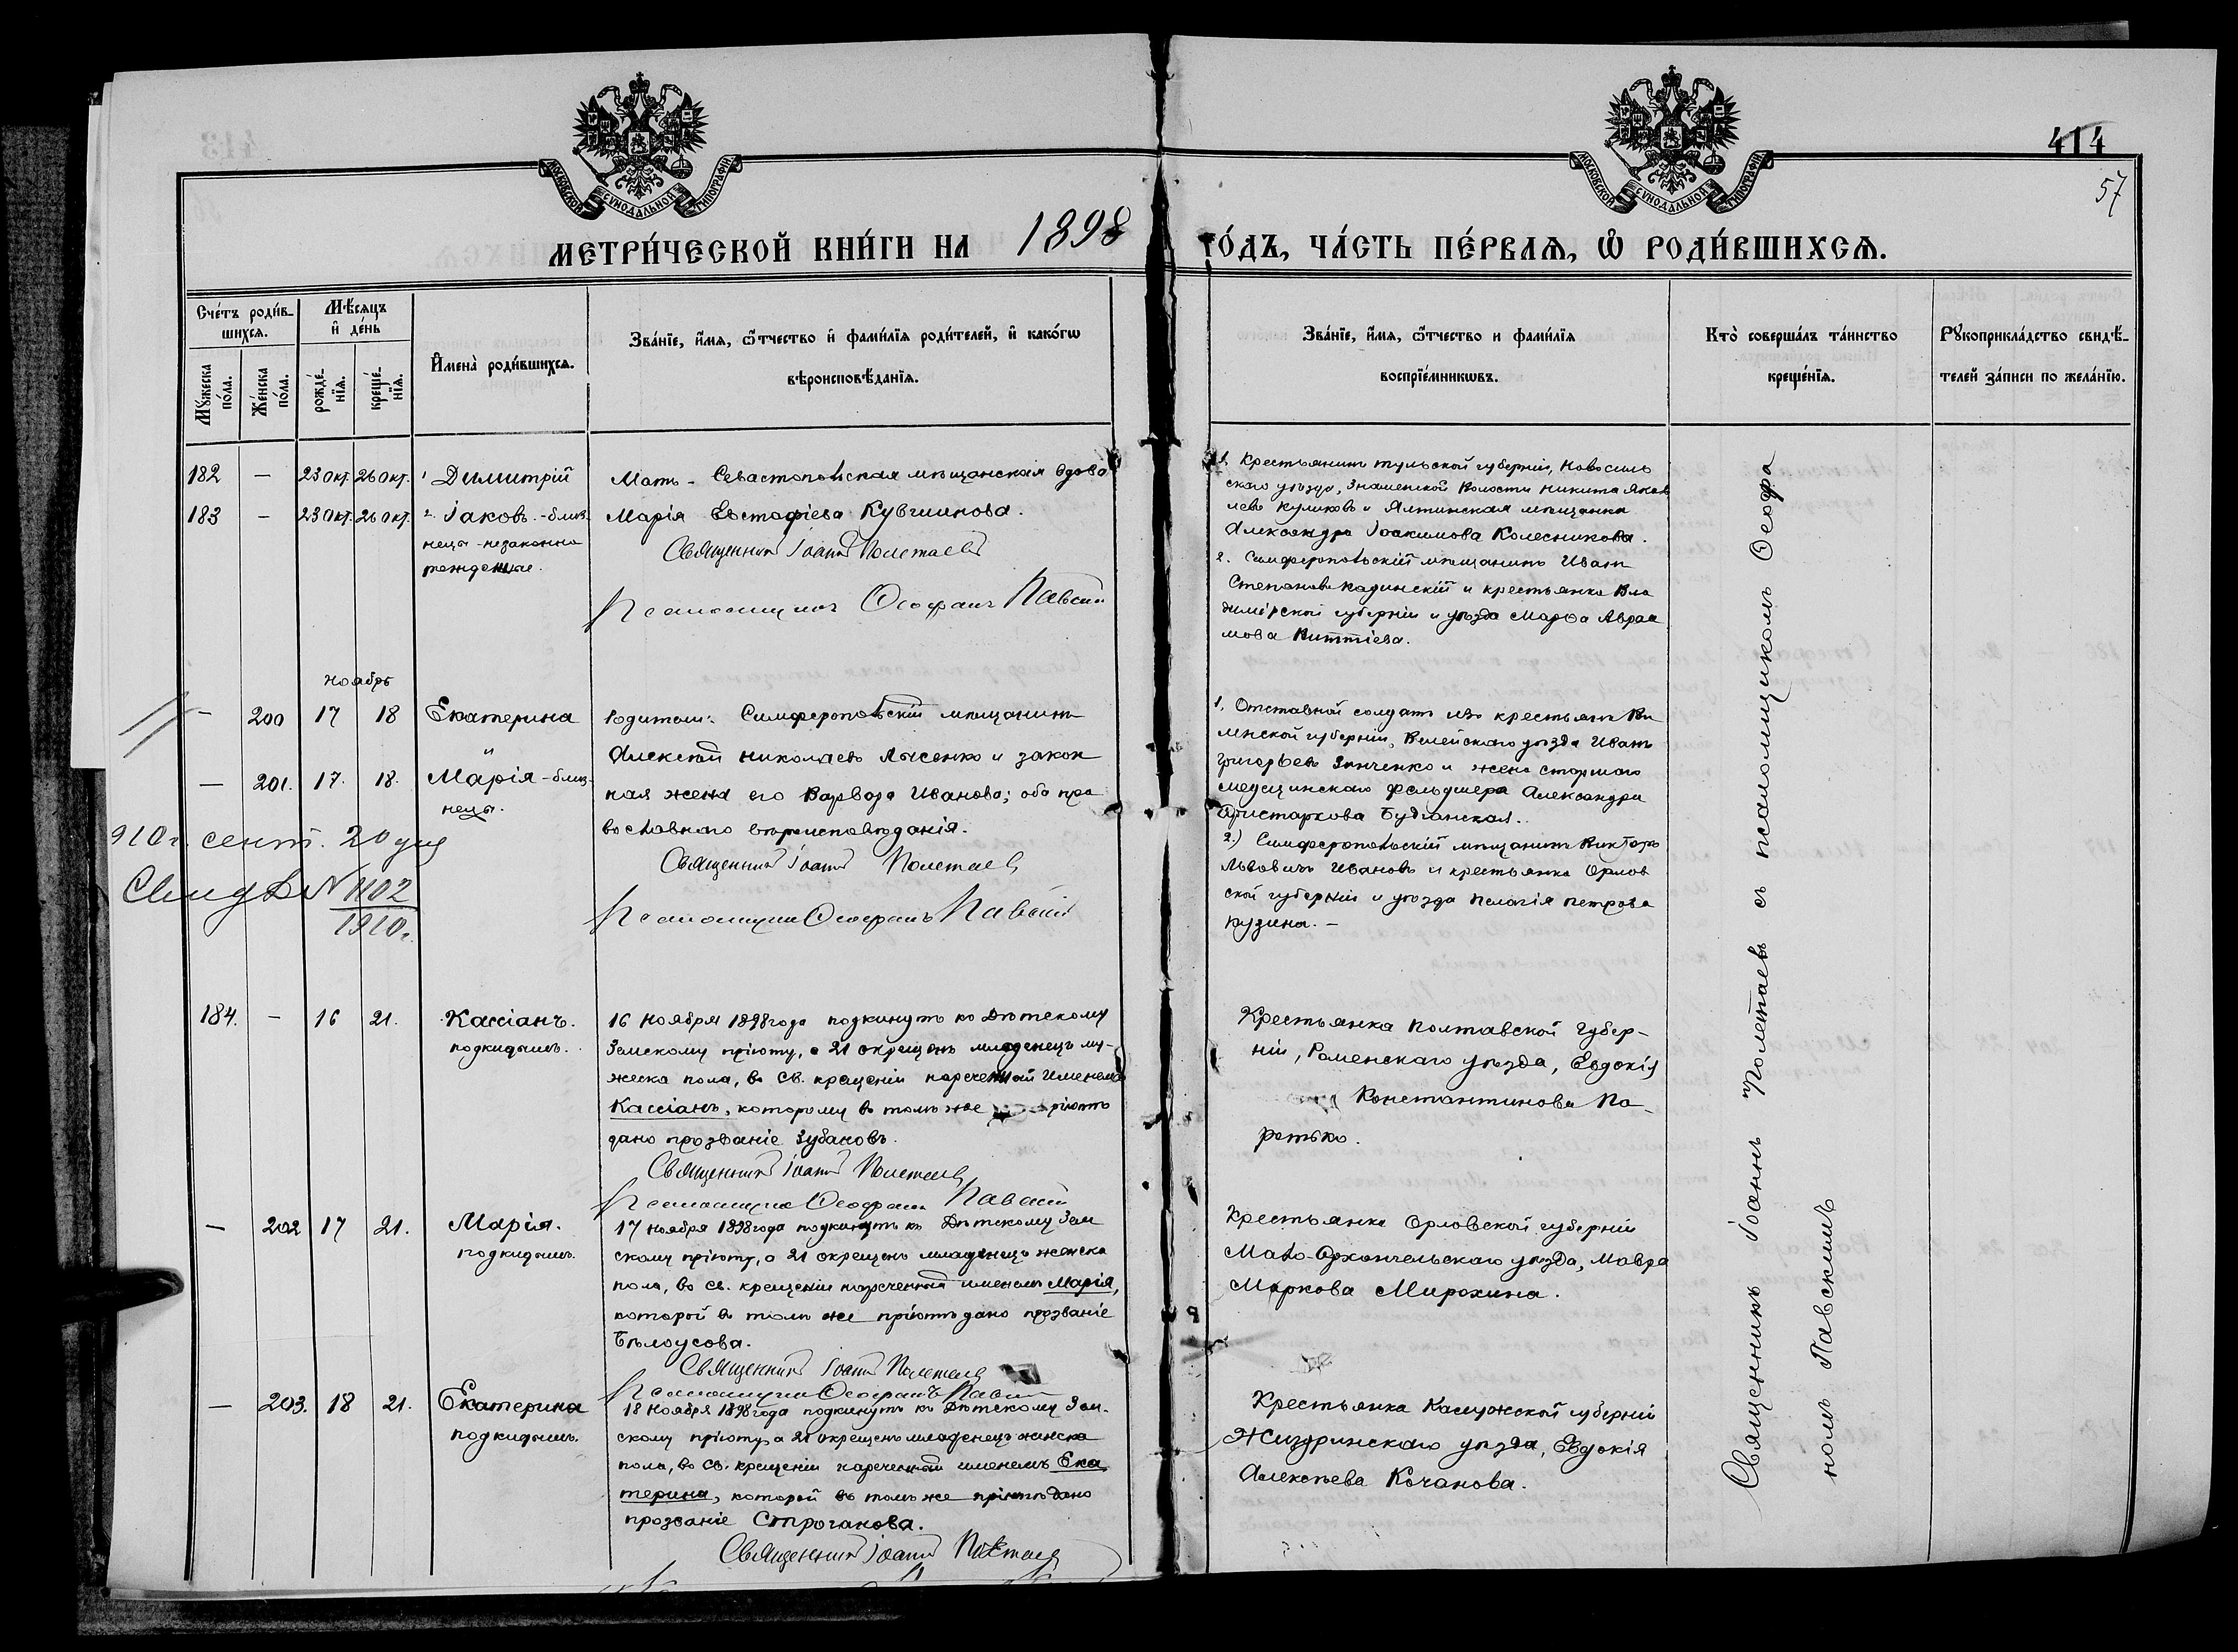 МОСКОВСКОЙ СѴНОДАЛЬНОЙ ТИПОГРАФІИ
МОСКОВСКОЙ СѴНОДАЛЬНОЙ ТИПОГРАФІИ
414
57
МЕТРИ́ЧЕСКОЙ КНИ́ГИ НА 1898 ГО́ДЪ, ЧА́СТЬ ПЕ́РВАѦ, Ѡ҆ РОДИ́ВШИХСѦ.
Сче́тъ роди́в-
шихся.
Мꙋ́жеска по́ла.
Же́нска по́ла.
Мѣ́сяцъ
и҆ де́нь
рожде́-нїя.
креще́-нїя.
И҆мена̀ роди́вшихся.
Зва́нїе, и҆́мя, ѻ҆́тчество и҆ фами́лїя роди́телей, и҆ како́гѡ
вѣроисповѣ́данїя.
Зва́нїе, и҆́мя, ѻ҆́тчество и фами́лїя
воспрїе́мникѡвъ.
Кто̀ соверша́лъ та́инство
креще́нїя.
Рꙋкоприкла́дство свидѣ́-
телей за́писи по жела́нїю.
182 — 23 окт. 26 окт. 1 Димитрій
183 — 23 окт. 26 окт. 2. Іаковъ. - близ-
нецы - незаконно
рожденные.
Мать - Севастопольская мѣщанская вдова
Марія Евстафіева Кувшинова.
Священникъ Іоаннъ Полетаевъ
Псаломщикъ Ѳеофанъ Павскій
1. Крестьянинъ тульской губерніи, Новосиль
скаго уѣзда, Знаменской волости Никита Яков
левъ Куликовъ и Ялтинская мѣщанка
Александра Іоакимова Колесникова.
2. Симферопольскій мѣщанинъ Иванъ
Степановъ Кадинскій и крестьянка Вла
димірской губерніи и уѣзда Марѳа Авраа
мова
ноябрь
— 200 17 18 Екатерина
и
— 201. 17. 18. Марія - близ-
нецы.
Родители: Симферопольскій мѣщанинъ
Алексѣй Николаевъ Лысенко и закон
ная жена его Варвара Иванова; оба пра
вославнаго вѣроисповѣданія.
Священникъ Іоаннъ Полетаевъ
Псаломщикъ Ѳеофанъ Павскій
1. Отставной солдатъ изъ крестьянъ Ви
ленской губерніи, Вилейскаго уѣзда Иванъ
Григорьевъ Зинченко и жена старшаго
медицинскаго фельдшера Александра
Аристархова Будзанская.
2.) Симферопольскій мѣщанинъ Викторъ
Львовичъ Ивановъ и крестьянка Орлов
ской губерніи и уѣзда Пелагія Петрова
Кузина. —
910 г. сент. 20 дня
Свид. № 1102
1910 г.
184. — 16 21. Кассіанъ.
подкидышъ.
16 ноября 1898 года подкинутъ къ Дѣтскому
Земскому пріюту, а 21 окрещенъ младенецъ му-
жеска пола, въ св. крещеніи нареченный именемъ
Кассіанъ, которому въ томъ же пріютѣ
дано прозваніе Зубановъ.
Священникъ Іоаннъ Полетаевъ
Псаломщикъ Ѳеофанъ Павскій
Крестьянка Полтавской губер-
ніи, Роменскаго уѣзда, Евдокія
Константинова По-
ротько.
— 202 17 21. Марія.
подкидышъ.
17 ноября 1898 года подкинутъ къ Дѣтскому Зем
скому пріюту, а 21 окрещенъ младенецъ женска
пола, въ св. крещеніи нареченный именемъ Марія,
которой въ томъ же пріютѣ дано прозваніе
Бѣлоусова.
Священникъ Іоаннъ Полетаевъ
Псаломщикъ Ѳеофанъ Павскій
Крестьянка Орловской губерніи
Мало-Архангельскаго уѣзда, Мавра
Маркова Мирохина.
— 203. 18 21. Екатерина
подкидышъ.
18 ноября 1898 года подкинутъ къ Дѣтскому Зем-
скому пріюту, а 21 окрещенъ младенецъ женска
пола, въ св. крещеніи нареченный именемъ Ека
терина, которой въ томъ же пріютѣ дано
прозваніе Строганова.
Священникъ Іоаннъ Полетаевъ
Крестьянка Калужской губерніи
Жиздринскаго уѣзда, Евдокія
Алексѣева Кочанова.
Священникъ Іоаннъ Полетаевъ съ псаломщикомъ Ѳеофа
номъ Павскимъ